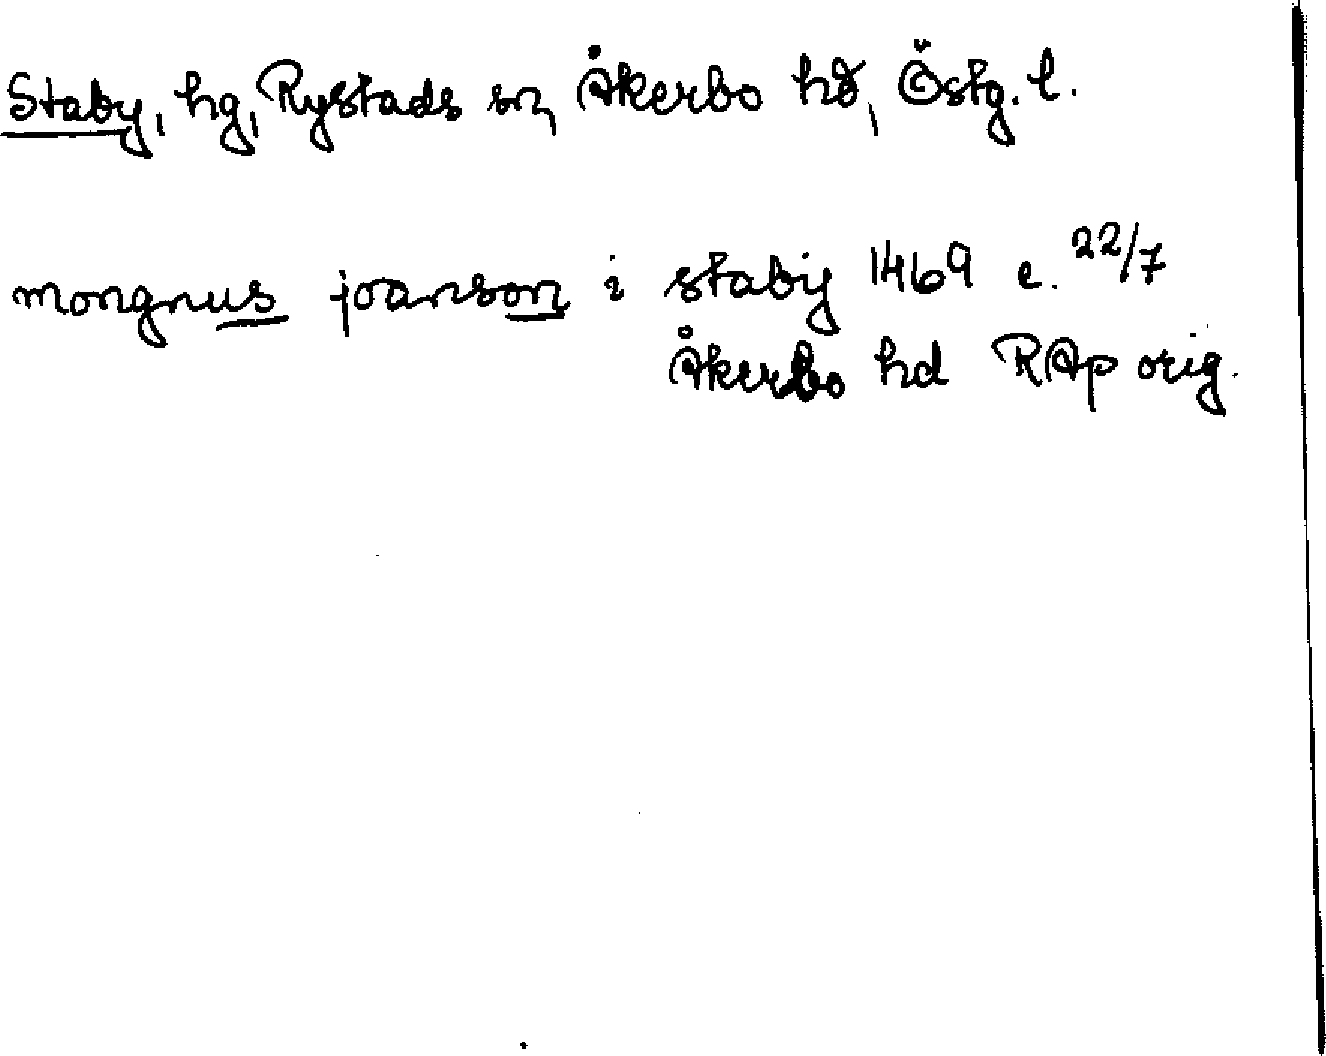 Staby, hg, Rystads sn, Åkerbo hd, Östg. l.
mongnus joanson i stabij 1469 e. 22/7
Åkerbo hd RAp orig.